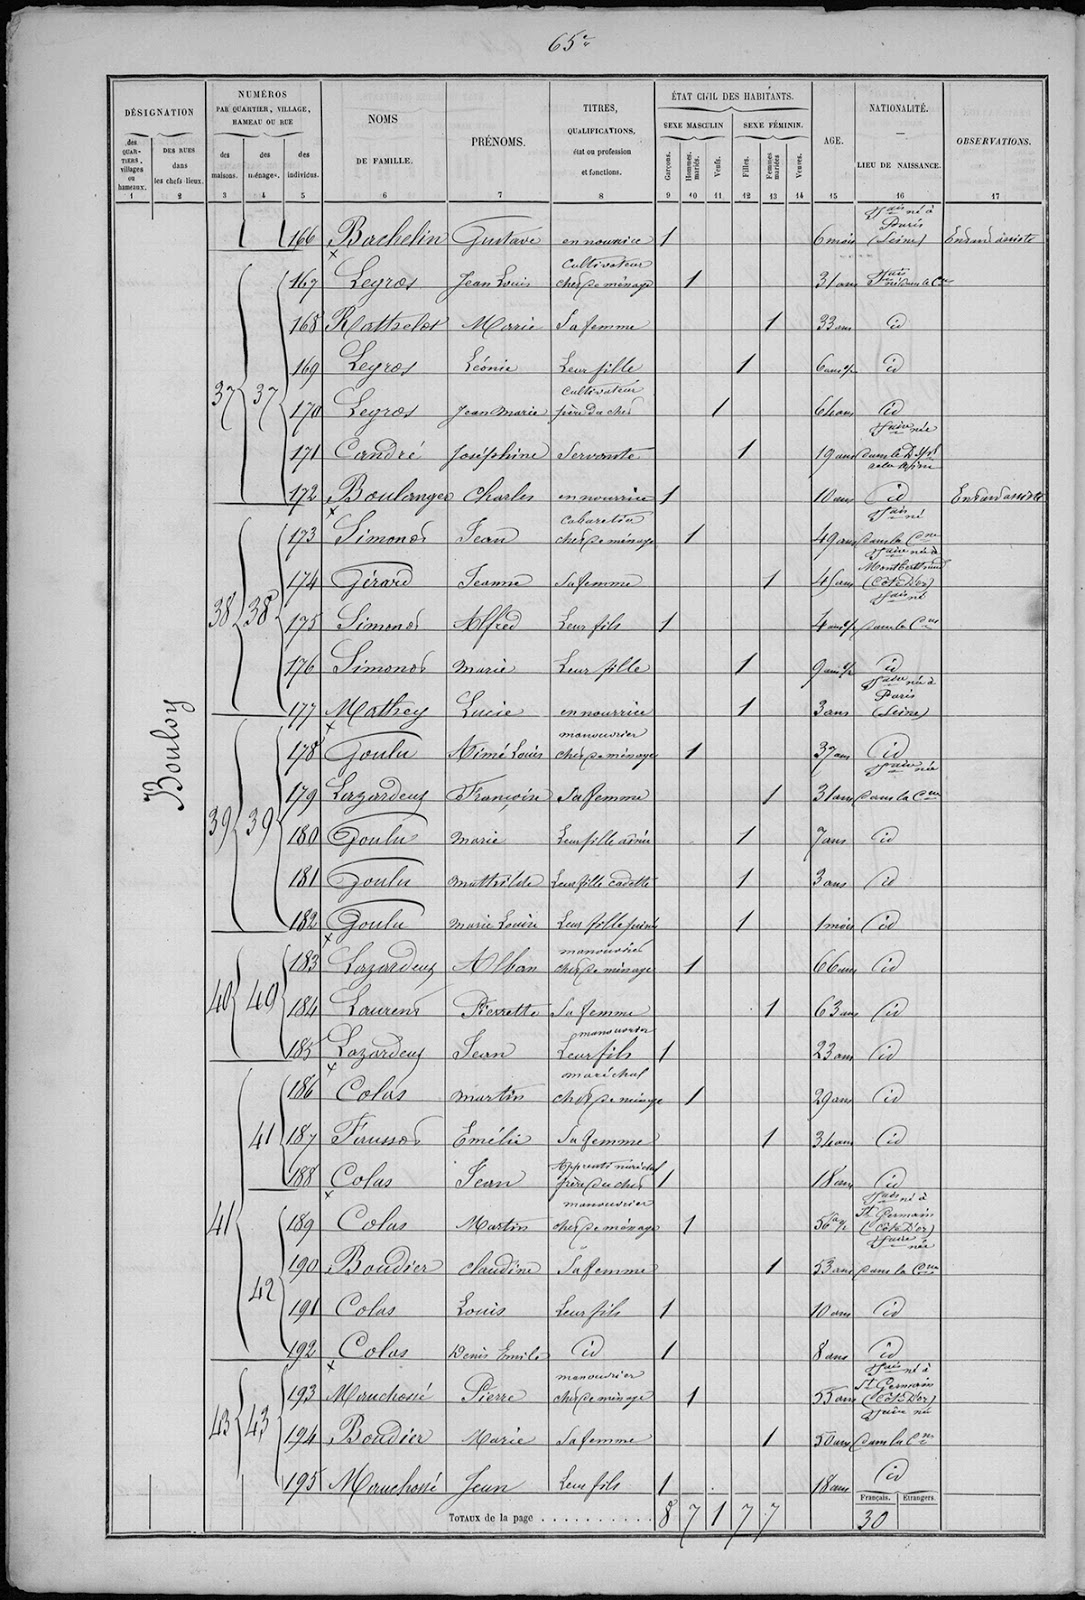 65e
DÉSIGNATION
des QUARTIERS, villages ou hameaux.
DES RUES dans les chefs-lieux.
NUMÉROS PAR QUARTIER, VILLAGE, HAMEAU OU RUE
des maisons.
des ménages.
des individus.
NOMS DE FAMILLE.
PRÉNOMS.
TITRES, QUALIFICATIONS, état ou profession et fonctions.
ÉTAT CIVIL DES HABITANTS.
SEXE MASCULIN
Garçons.
Hommes mariés.
Veufs.
SEXE FÉMININ.
Filles.
Femmes mariées
Veuves.
AGE.
NATIONALITÉ.
LIEU DE NAISSANCE.
OBSERVATIONS.
1 2 3 4 5 6 7 8 9 10 11 12 13 14 15 16 17
Bouloy
166 Bachelin Gustave en nourrice 1 6 mois né à Paris (Seine) Enfant assisté
37 37 167 Legros Jean Louis cultivateur chef de ménage 1 31 ans né dans la Cne
168 Rathelot Marie Sa femme 1 33 ans id
169 Legros Léonie Leur fille 1 6 ans id
170 Legros Jean Marie cultivateur père du chef 1 64 ans id
171 Candré Joséphine Servante 1 19 ans née dans le
172 Boulanger Charles en nourrice 1 10 ans id Enfant assisté
38 38 173 Simonot Jean Cabaretier chef de ménage 1 49 ans né dans la Cne
174 Gérard Jeanne Sa femme 1 45 ans née à (Côte d'or)
175 Simonot Alfred Leur fils 1 4 ans né dans la Cne
176 Simonot Marie Leur fille 1 9 ans id
177 Mathey Lucie en nourrice 1 3 ans née à Paris (Seine)
39 39 178 Goulu Aimé Louis manouvrier chef de ménage 1 37 ans id
179 Lazardeux Françoise Sa femme 1 31 ans née dans la Cne
180 Goulu Marie Leur fille ainée 1 7 ans id
181 Goulu Mathilde Leur fille cadette 1 3 ans id
182 Goulu Marie Louise Leur fille puinée 1 1 mois id
40 40 183 Lazardeux Alban manouvrier chef de ménage 1 66 ans id
184 Laurent Pierrette Sa femme 1 63 ans id
185 Lazardeux Jean manouvrier Leur fils 1 23 ans id
41 41 186 Colas Martin maréchal chef de ménage 1 29 ans id
187 Emélie Sa femme 1 34 ans id
188 Colas Jean Apprenti maréchal frère du chef 1 18 ans id
42 189 Colas Martin manouvrier chef de ménage 1 56 né à St Germain (Côte d'or)
190 Boudier Claudine Sa femme 1 53 ans née dans la Cne
191 Colas Louis Leur fils 1 10 ans id
192 Colas Denis Emile id 1 8 ans id
43 43 193 Maruchossé Pierre manouvrier chef de ménage 1 55 ans né à St Germain (Côte d'or)
194 Boudier Marie Sa femme 1 50 ans née dans la Cne
195 Maruchossé Jean Leur fils 1 18 ans id
Français. Étrangers.
TOTAUX de la page 8 7 1 7 7 30